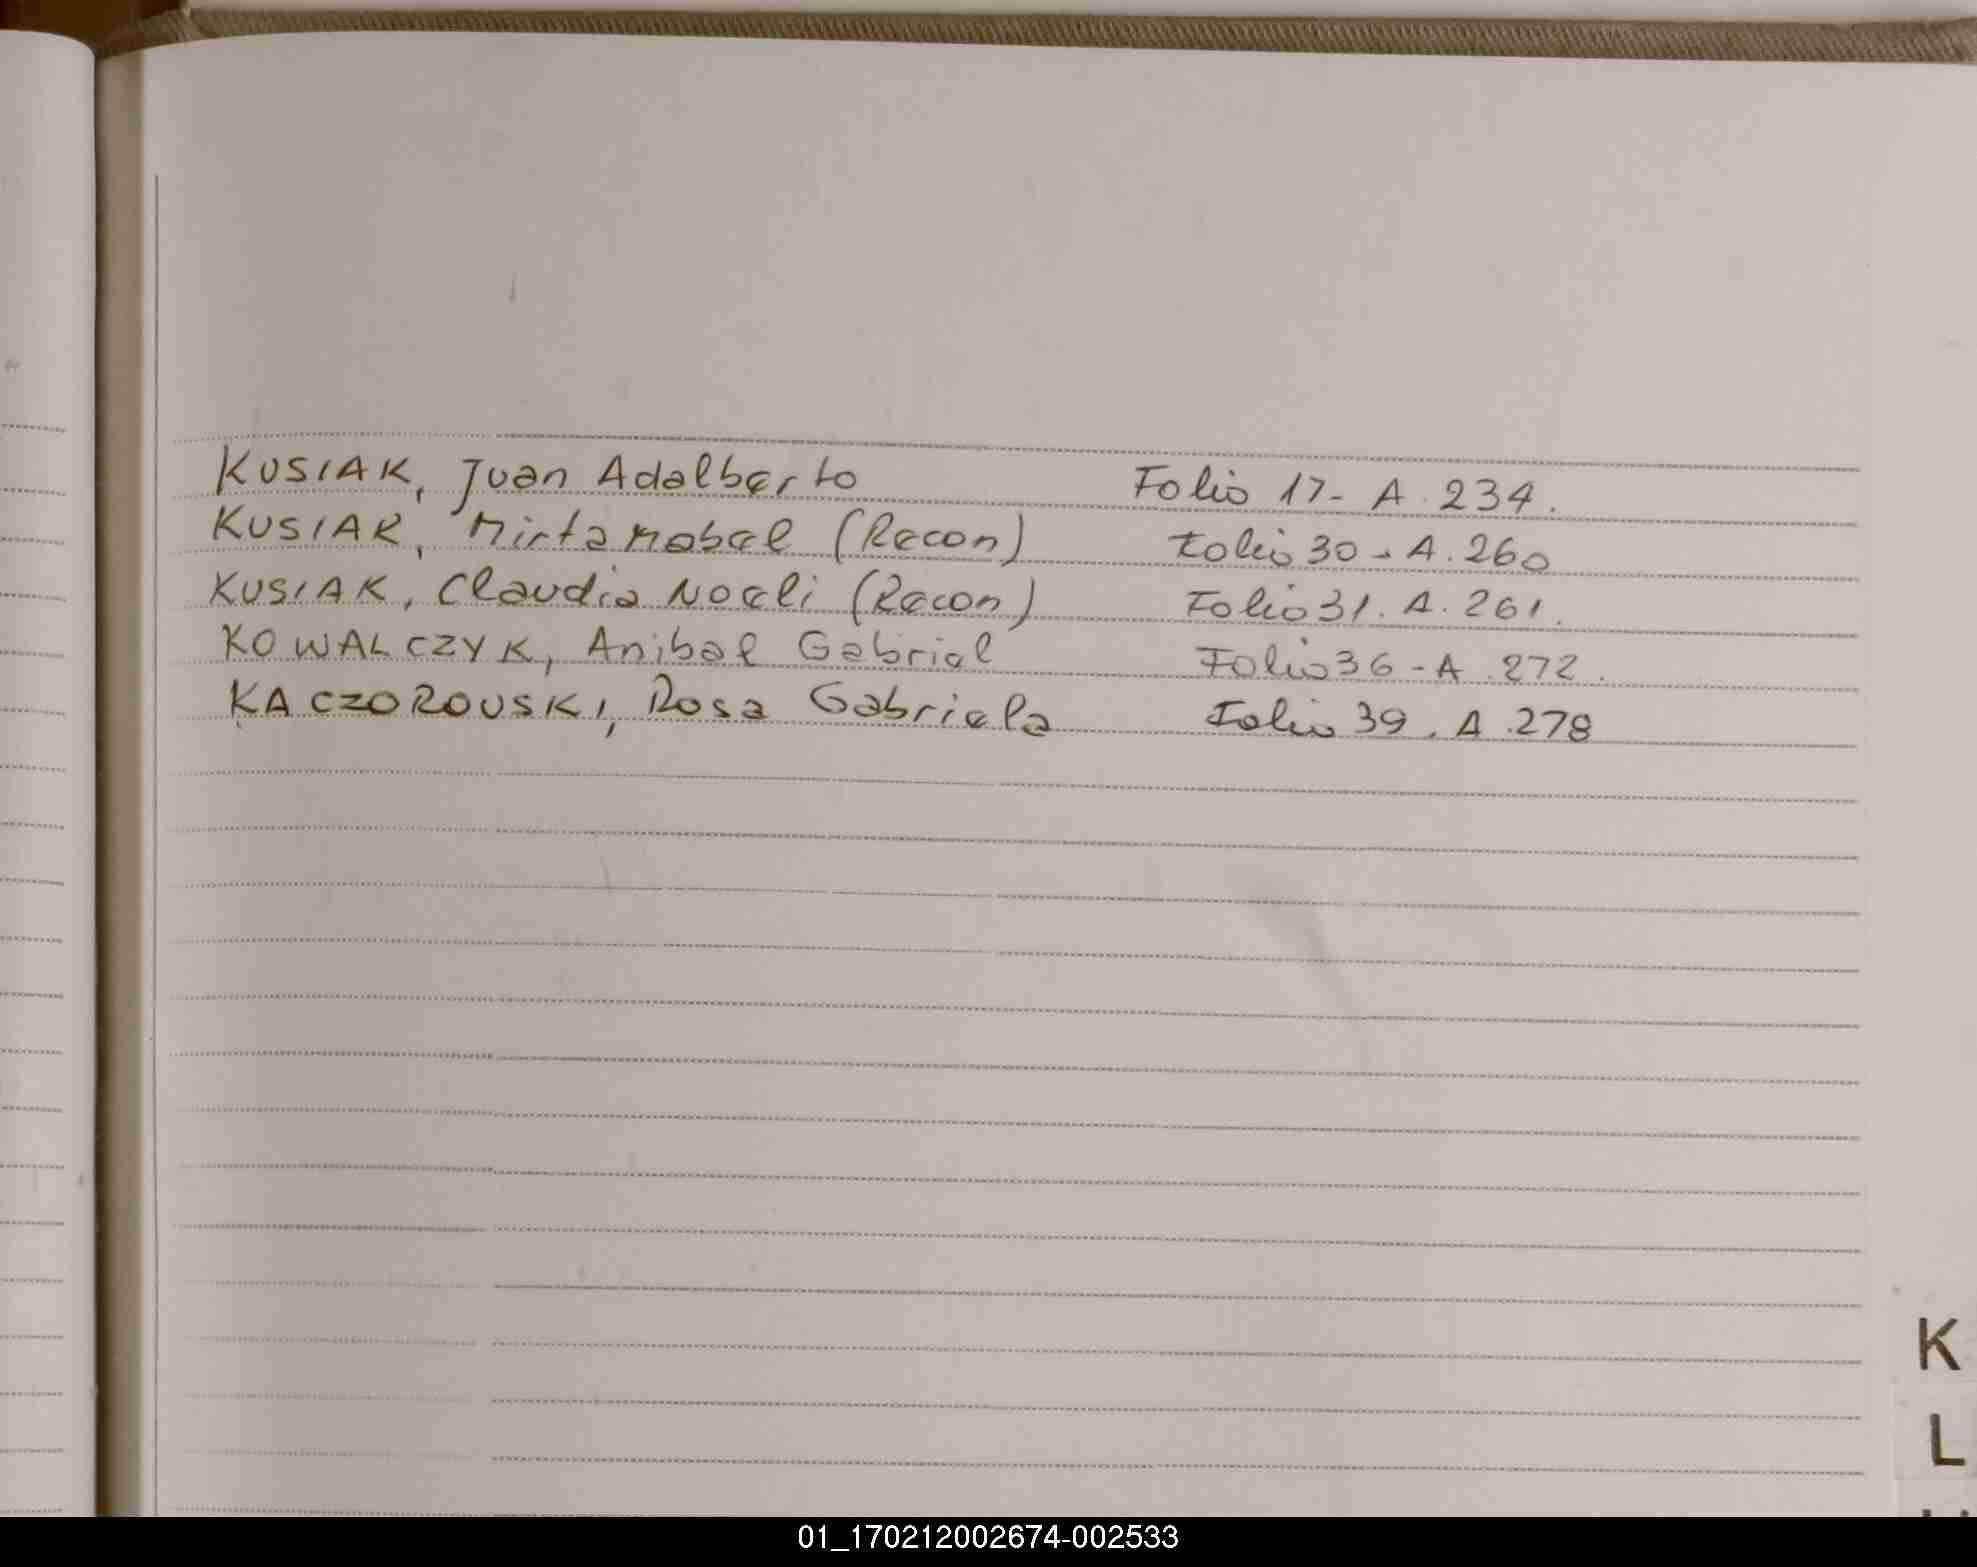 KUSIAK, Juan Adalberto Folio 17- A. 234.
KUSIAK, Mirta Mabel (Recon) Folio 30 - A. 260
KUSIAK, Claudia Noeli (Recon) Folio 31. A. 261.
KOWALCZYK, Anibal Gabriel Folio 36 - A. 272.
KACZOROUSKI, Rosa Gabriela Folio 39. A. 278
K
L
01_170212002674-002533